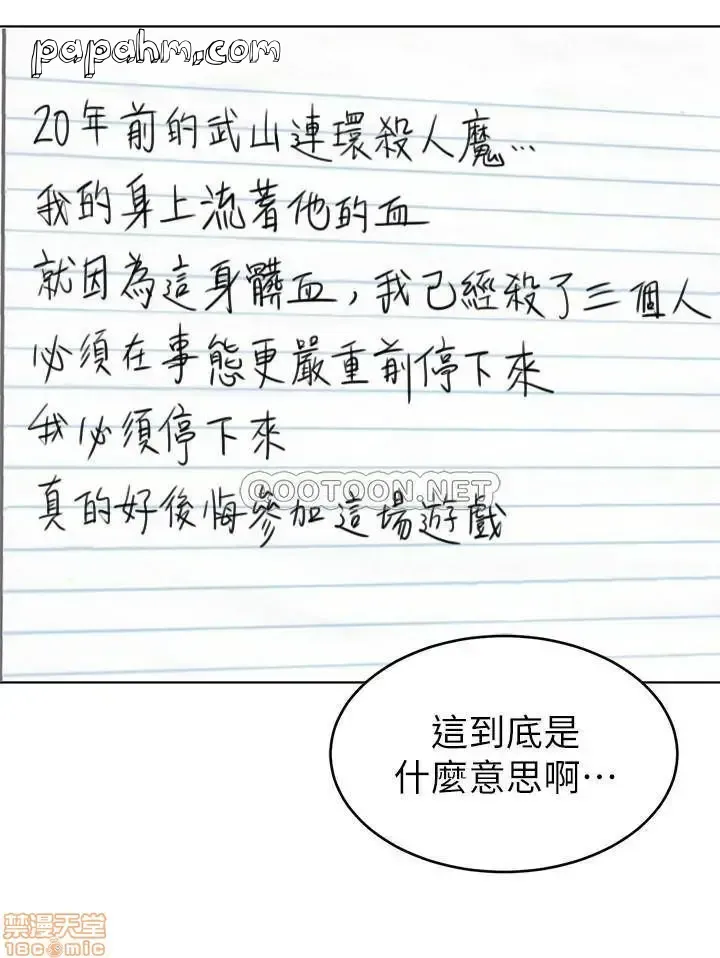 papahm.com
20年前的武山連環殺人魔…
我的身上流著他的血
就因為這身髒血，我已經殺了三個人
必須在事態更嚴重前停下來
我必須停下來
GOOTOON.NET
真的好後悔參加這場遊戲
這到底是
什麼意思啊…
禁漫天堂
18comic